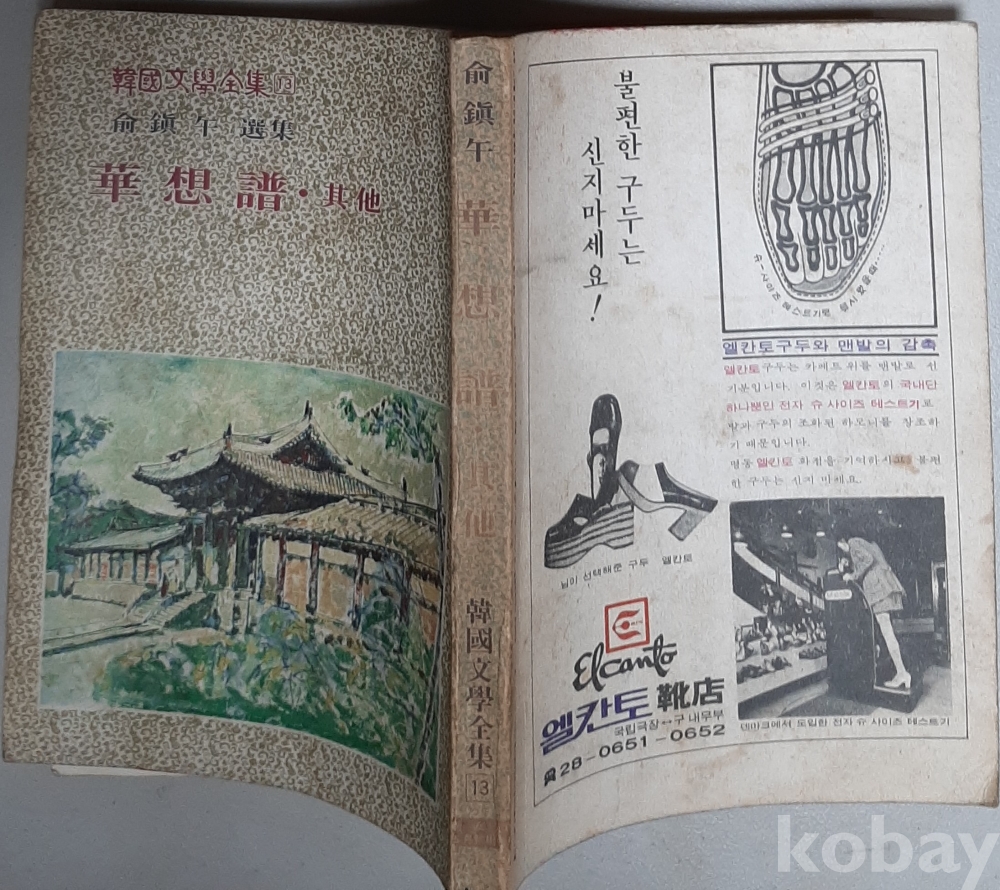 韓國文學全集 13
兪鎭午 選集
華想譜·其他
兪鎭午 華想譜 其他 韓國文學全集 13
불편한 구두는
신지마세요!
슈ー사이즈 테스트기로
엘칸토구두와 맨발의 감촉
엘칸토구두는 카페트위를 맨발로 선
기분입니다. 이것은 엘칸토의 국내단
하나뿐인 전자 슈 사이즈 테스트기로
발과 구두의 조화된 하모니를 창조하
기 때문입니다.
명동 엘칸토 화점을 기억하시고 불편
한 구두는 신지 마세요.
님이 선택해준 구두 엘칸토
Elcanto
엘칸토 靴店
국립극장↔구 내무부
☎28-0651-0652
덴마크에서 도입한 전자 슈 사이즈 테스트기
kobay